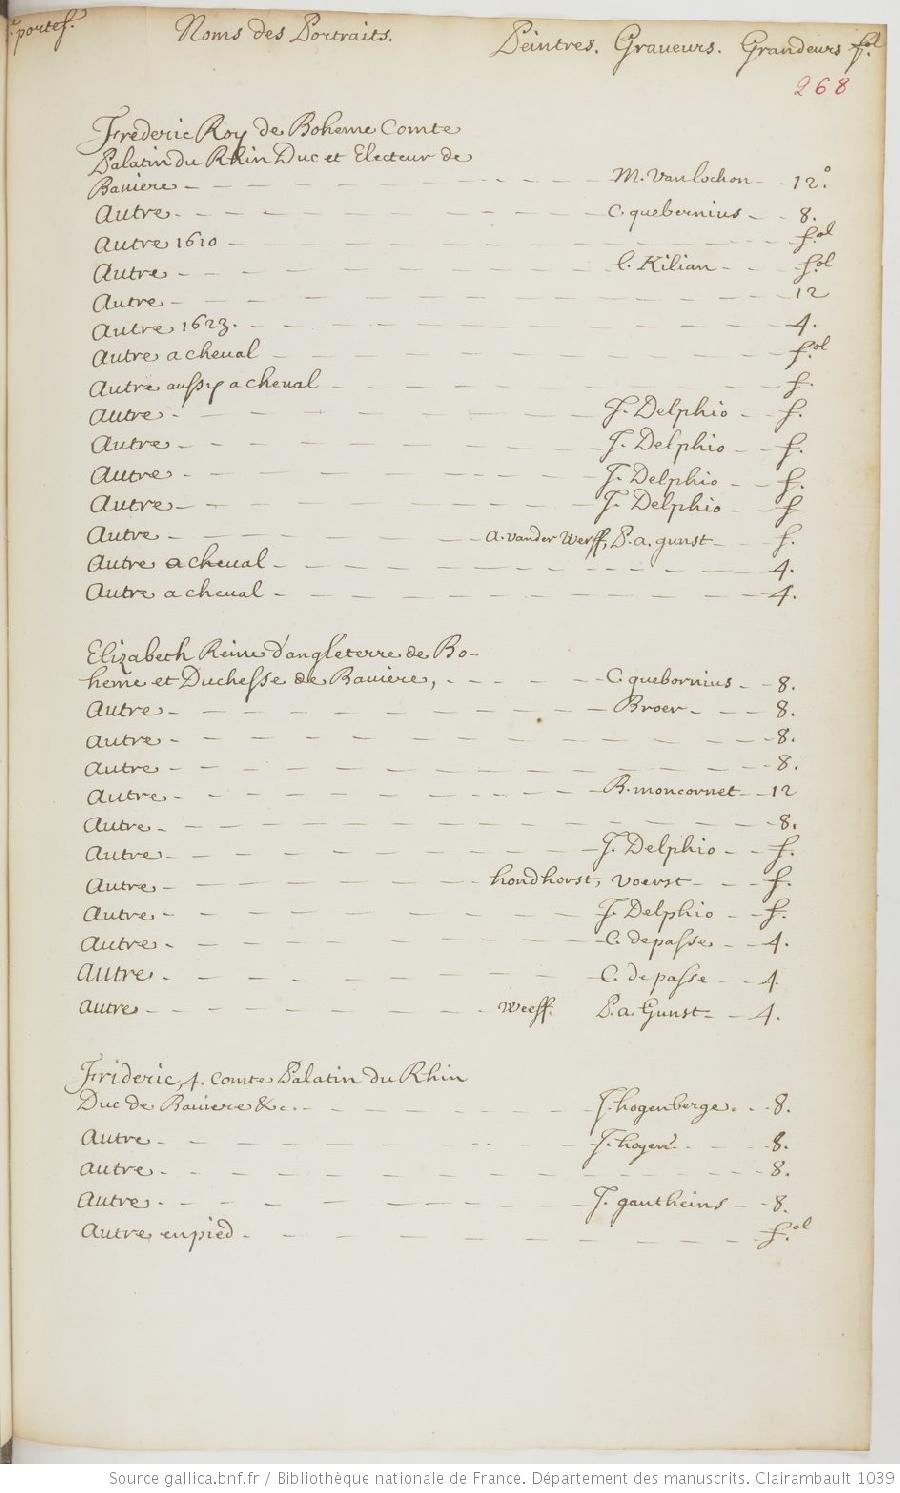 portef. Noms des Portraits. Peintres. Graveurs. Grandeurs fol.
268
Frederic Roy de Boheme Comte
Palatin du Rhin Duc et Electeur de
Baviere - M. Van lochon - 12°
Autre - C. quebernius - 8.
Autre 1610 - fol
Autre - l. Kilian - fol
Autre - 12
Autre 1623. - 4.
Autre a cheval - fol
Autre aussy a cheval - f.
Autre - J. Delphio - f.
Autre - J. Delphio - f.
Autre - J. Delphio - f.
Autre - J. Delphio - f
Autre - a. vander Werff, P. a. gunst - f.
Autre a cheval - 4.
Autre a cheval - 4.
Elizabeth Reine d'angleterre de Bo-
heme et Duchesse de Baviere, - C. quebornius - 8.
Autre - Broer - 8.
Autre - 8.
Autre - 8.
Autre - B. moncornet - 12
Autre - 8.
Autre - J. Delphio - f.
Autre - hondhorst, voerst - f.
Autre - J. Delphio - f.
Autre - C. de passe - 4.
Autre - C. de passe - 4
Autre - Weeff. P. a. Gunst - 4.
Frideric, 4. Comte Palatin du Rhin
Duc de Baviere &c. - J. hogenberge - 8.
Autre - J. hogen - 8.
Autre - 8.
Autre - J. gautheins - 8.
Autre en pied - fol
Source gallica.bnf.fr / Bibliothèque nationale de France. Département des manuscrits. Clairambault 1039